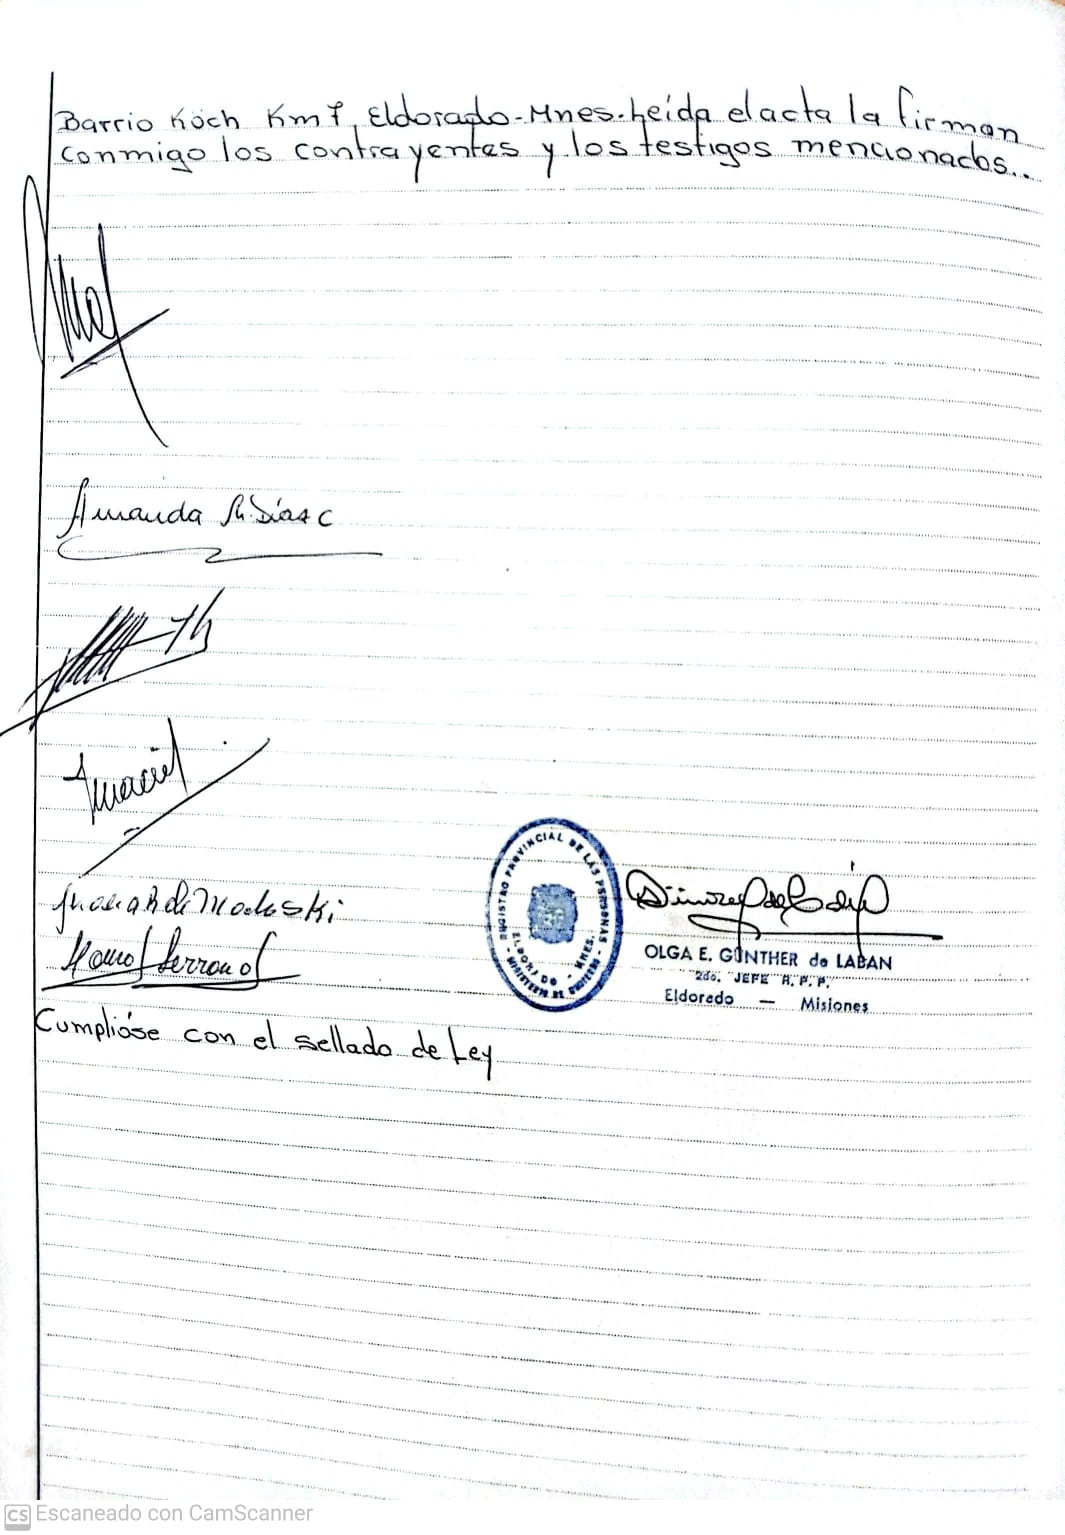 Barrio Köch Km 7, Eldorado-Mnes. Leída el acta la firman
conmigo los contrayentes y los testigos mencionados...
Amanda R. Díaz C
REGISTRO PROVINCIAL DE LAS PERSONAS
MINISTERIO DE GOBIERNO
ELDORADO - MNES.
OLGA E. GÜNTHER de LABAN
2do. JEFE R. P. P.
Eldorado — Misiones
Cumplióse con el sellado de Ley
CS Escaneado con CamScanner